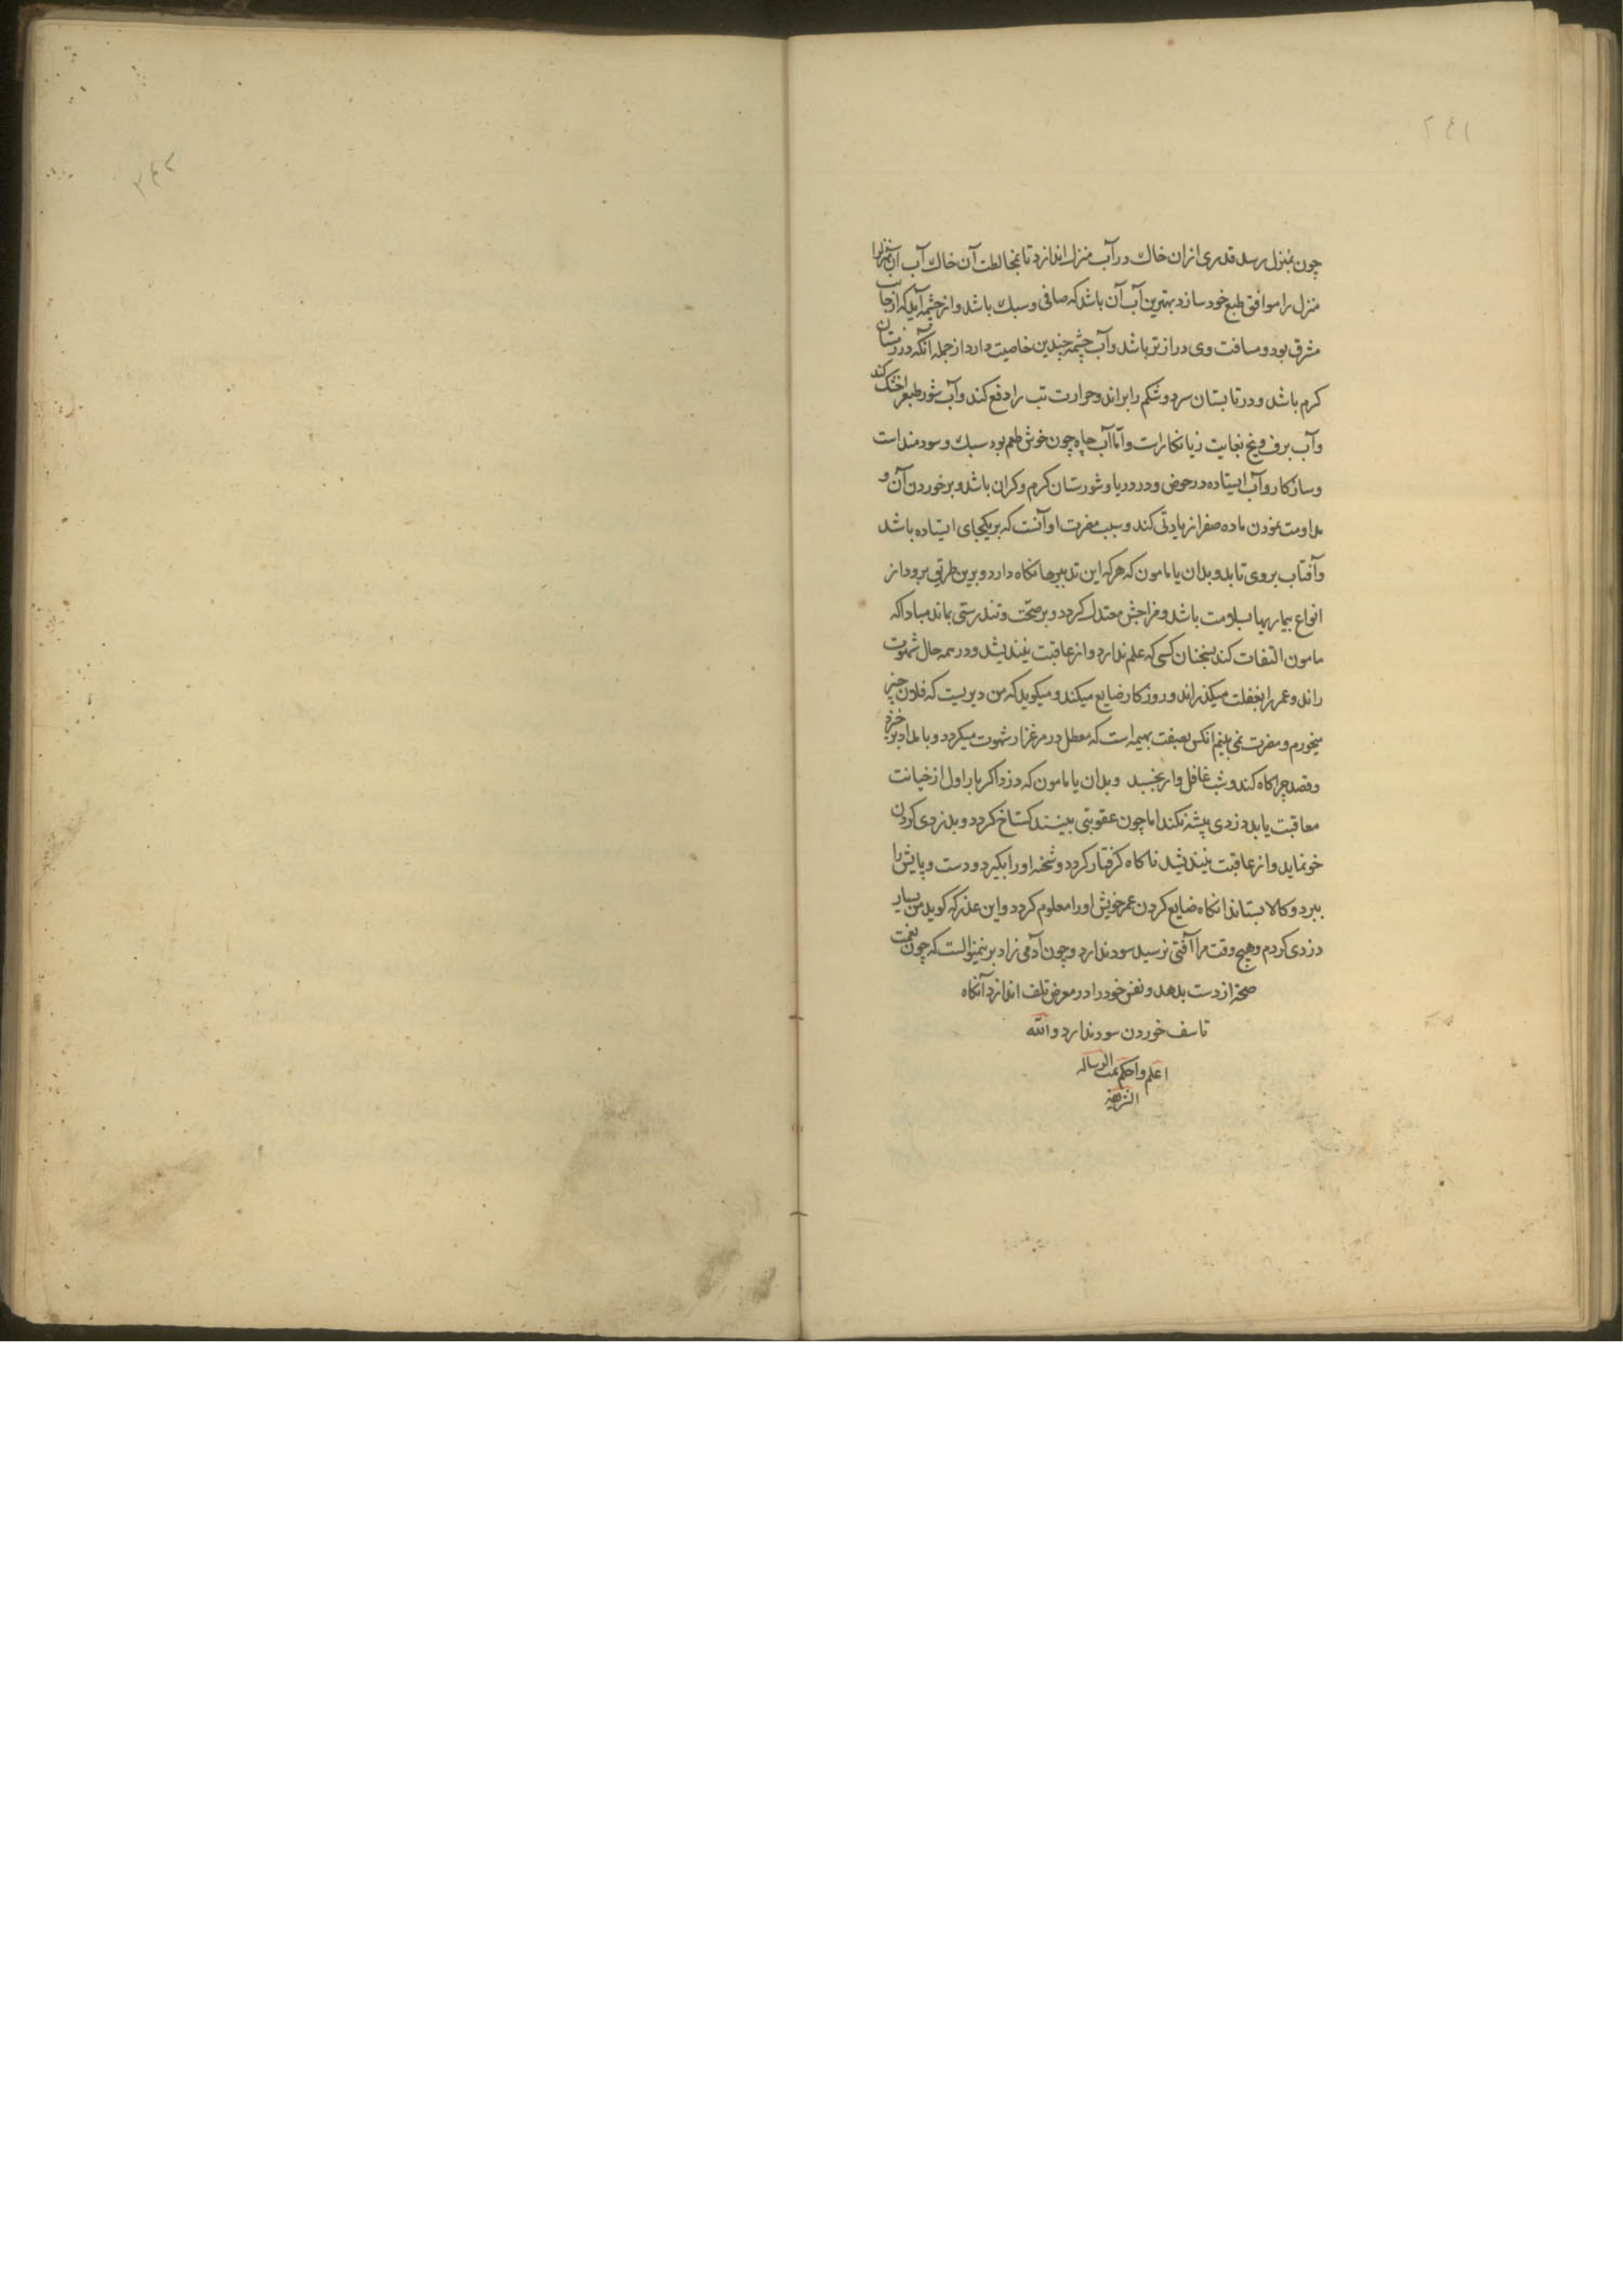 ٢٤١
چون بمنزل رسد قدری ازان خاك در آب منزل اندازد تا بمخالطت آن خاك آب آن منزلرا
منزل را موافق طبع خود سازد بهترین آب آن باشد که صافی و سبك باشد و از چشمه آید که از جانب
مشرق بود و مسافت وی درازتر باشد و آب چشمه چندین خاصیت دارد از جمله آنکه در زمستان
کرم باشد و در تابستان سرد و شکم را براند و حرارت تب را دفع کند و آب شور طبع را خشك کند
و آب برف و یخ بغایت زیانکارست و امّا آب چاه چون خوش طعم بود سبك و سودمند است
و سازکار و آب ایستاده در حوض و در دریا و شورستان کرم و کران باشد و بر خوردن آن و
مداومت نمودن ماده صفرا زیادتی کند و سبب مضرت او آنست که بر یکجای ایستاده باشد
و آفتاب بروی تابد و بدان یا مامون که هرکه این تدبیرها نکاه دارد و برین طریق برود از
انواع بیماریها بسلامت باشد و مزاجش معتدل کردد و بر صحّت و تندرستی بماند مبادا که
مامون التفات کند بسخنان کسی که علم ندارد و از عاقبت نیندیشد و در همه حال شهوت
راند و عمر را بغفلت میکذراند و روزکار ضایع میکند و میکوید که من دیریست که فلان چیز
میخورم و مضرت نمی بینم انکس بصفت بهیمه است که معطل در مرغزار شهوت میکردد و بامداد برخیزد
و قصد چراکاه کند و شب غافل وار بخسبد و بدان یا مامون که دزد اکر بار اول از خیانت
معاقبت یابد دزدی پیشه نکند اما چون عقوبتی نبیند کستاخ کردد و بدزدی کردن
خو نماید و از عاقبت نیندیشد ناکاه کرفتار کردد و شحنه او را بکیرد و دست و پایش را
ببرد و کالا بستاند انکاه ضایع کردن عمر خویش او را معلوم کردد و این عذر که کوید من بسیار
دزدی کردم و هیچ وقت مرا آفتی نرسید سود ندارد و چون آدمی زاد برینمنوالست که چون نعمت
صحة از دست بدهد و نفس خود را در معرض تلف اندازد آنکاه
تاسف خوردن سود ندارد والله
اعلم و احکم تمت الرسالة
الشریفة
٢٤٢